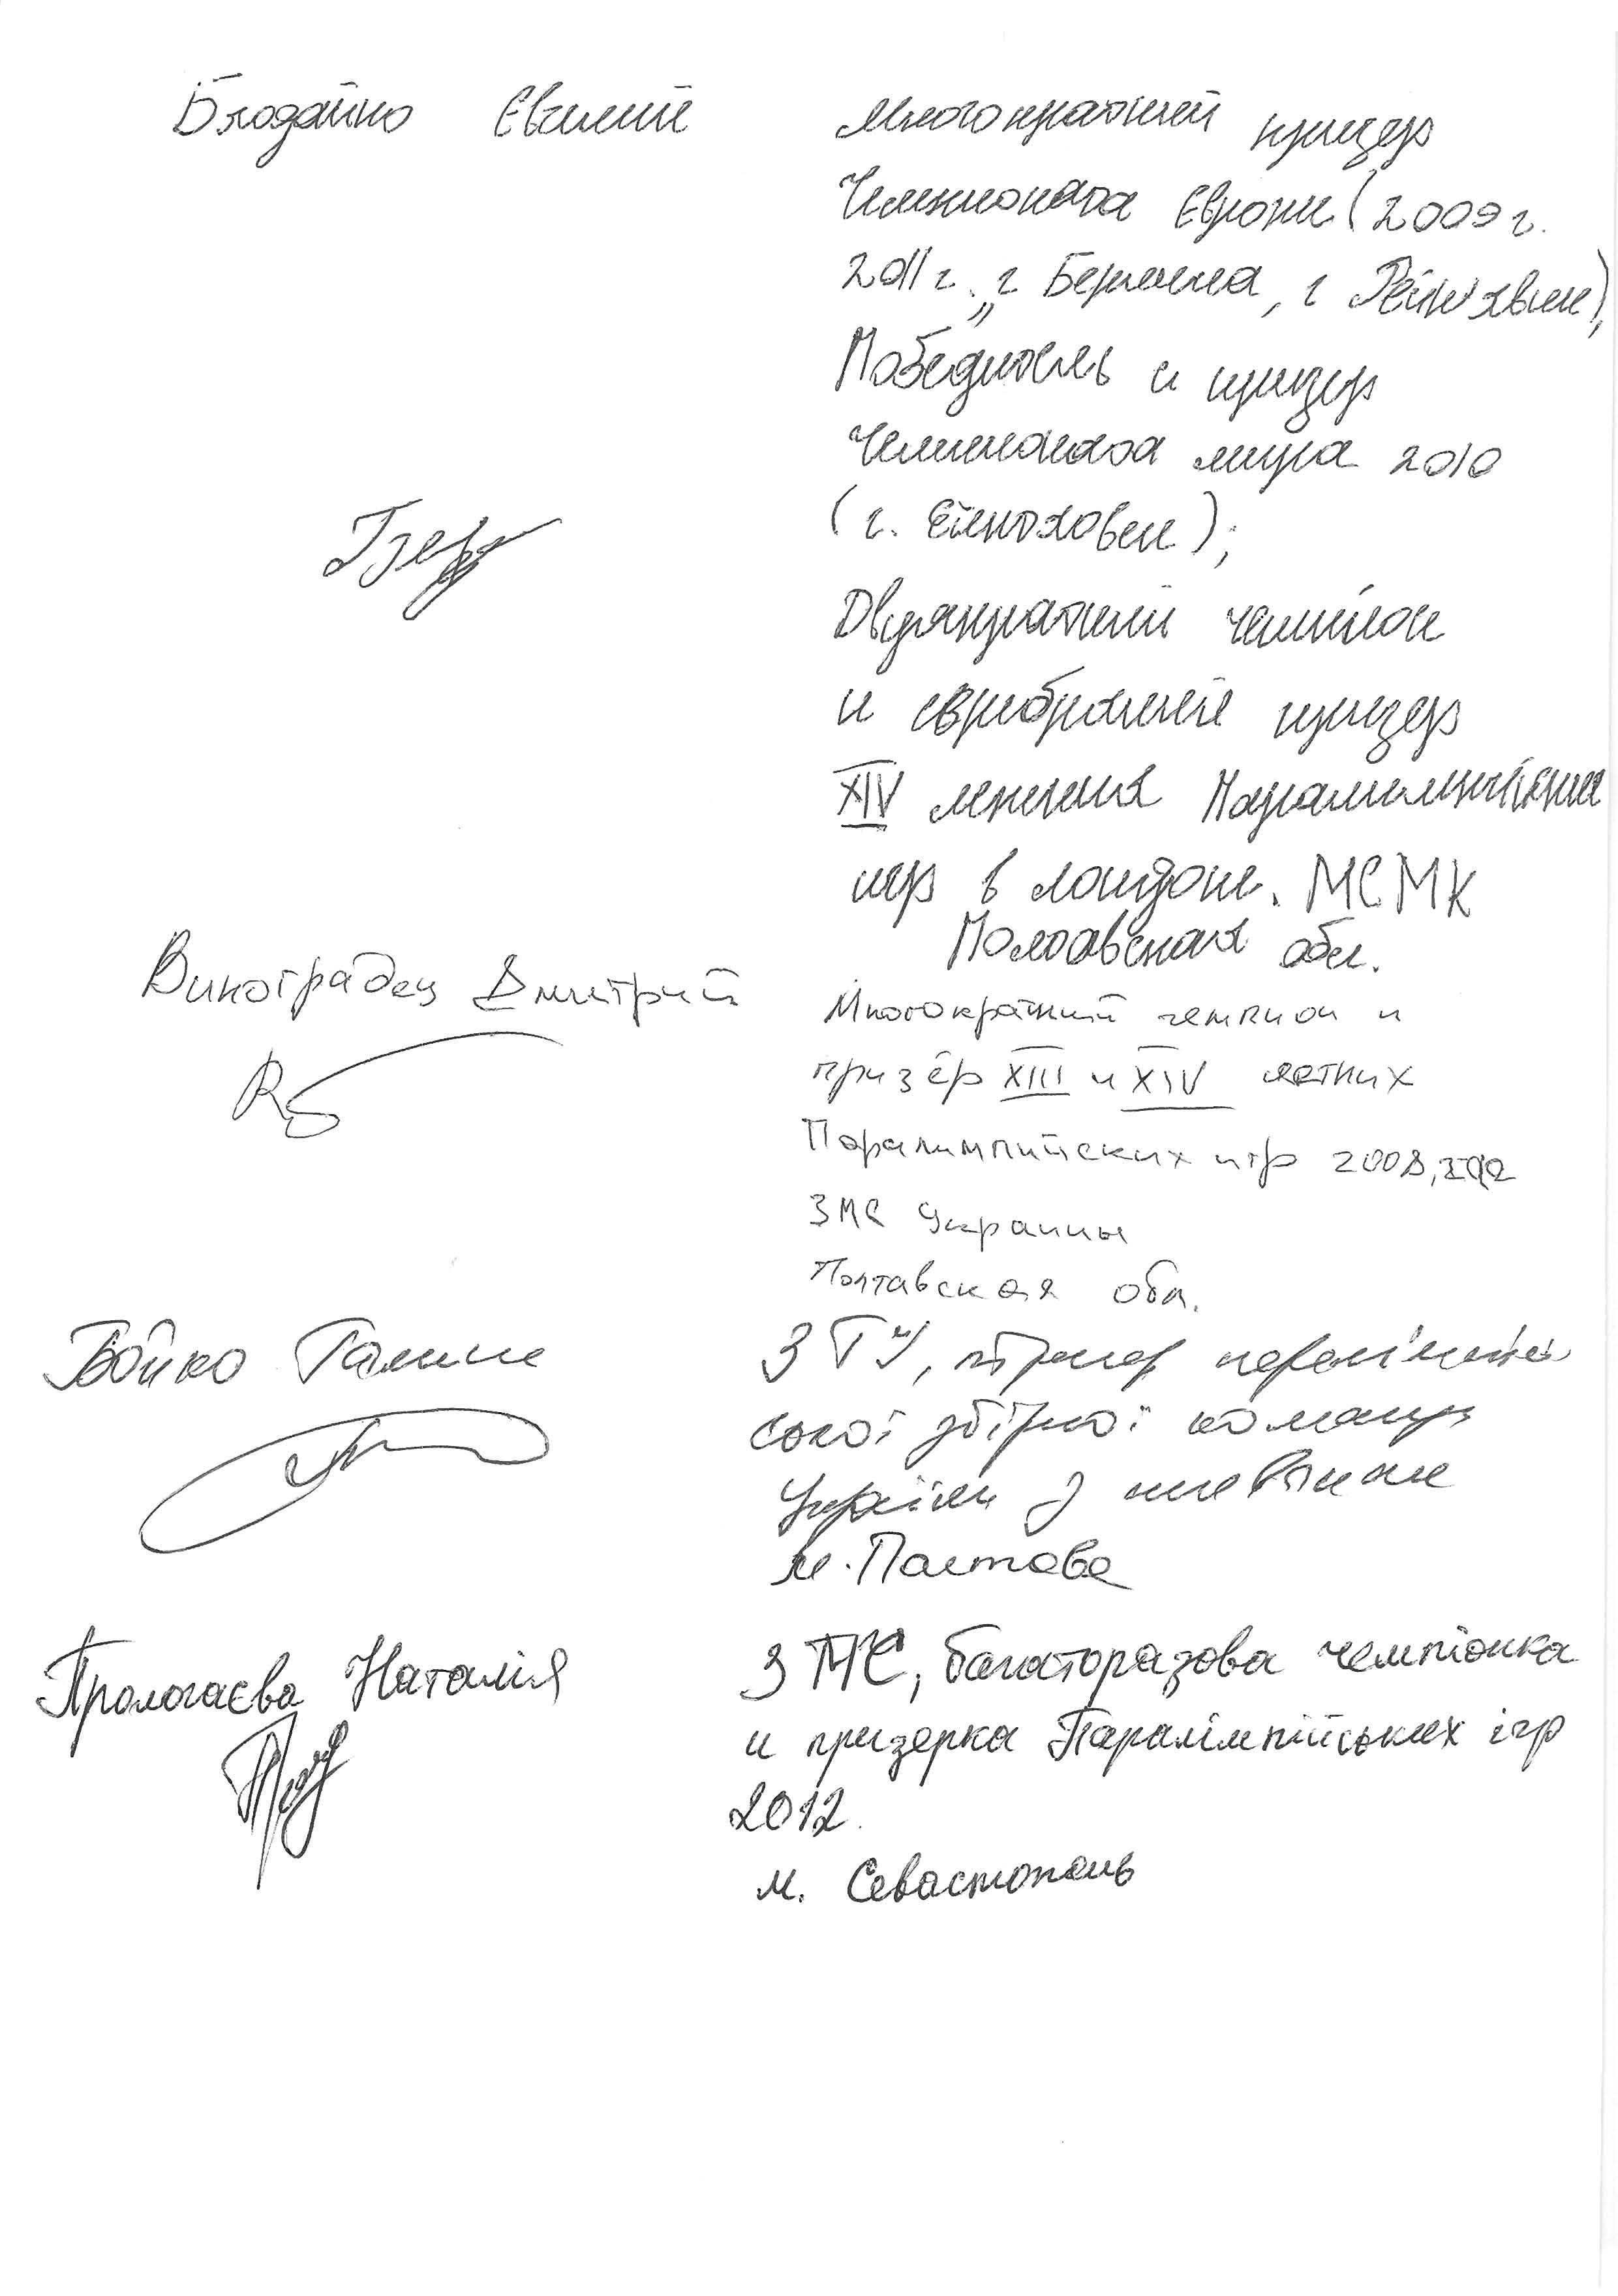 Бгодайко Євгений
Многократний призер
Чемпионата Європи (2009 г.
2011 г., г Берлина, г Рейкявик),
Победитель и призер
Чемпионата мира 2010
(г. Ейндховен);
Двукратний чемпион
и серебряний призер
XIV летних Паралимпийских
игр в Лондоне. МСМК
Полтавская обл.
Виноградец Дмитрий
Многократний чемпион и
призёр XIII и XIV летних
Паралимпийских игр 2008, 2012
ЗМС Украины
Полтавская обл.
Бойко Галина
ЗТУ, тренер паралімпій-
ської збірної команди
України з плавання
м. Полтава
Прологаєва Наталія
ЗМС, багаторазова чемпіонка
и призерка Паралімпійських ігр
2012.
м. Севастополь